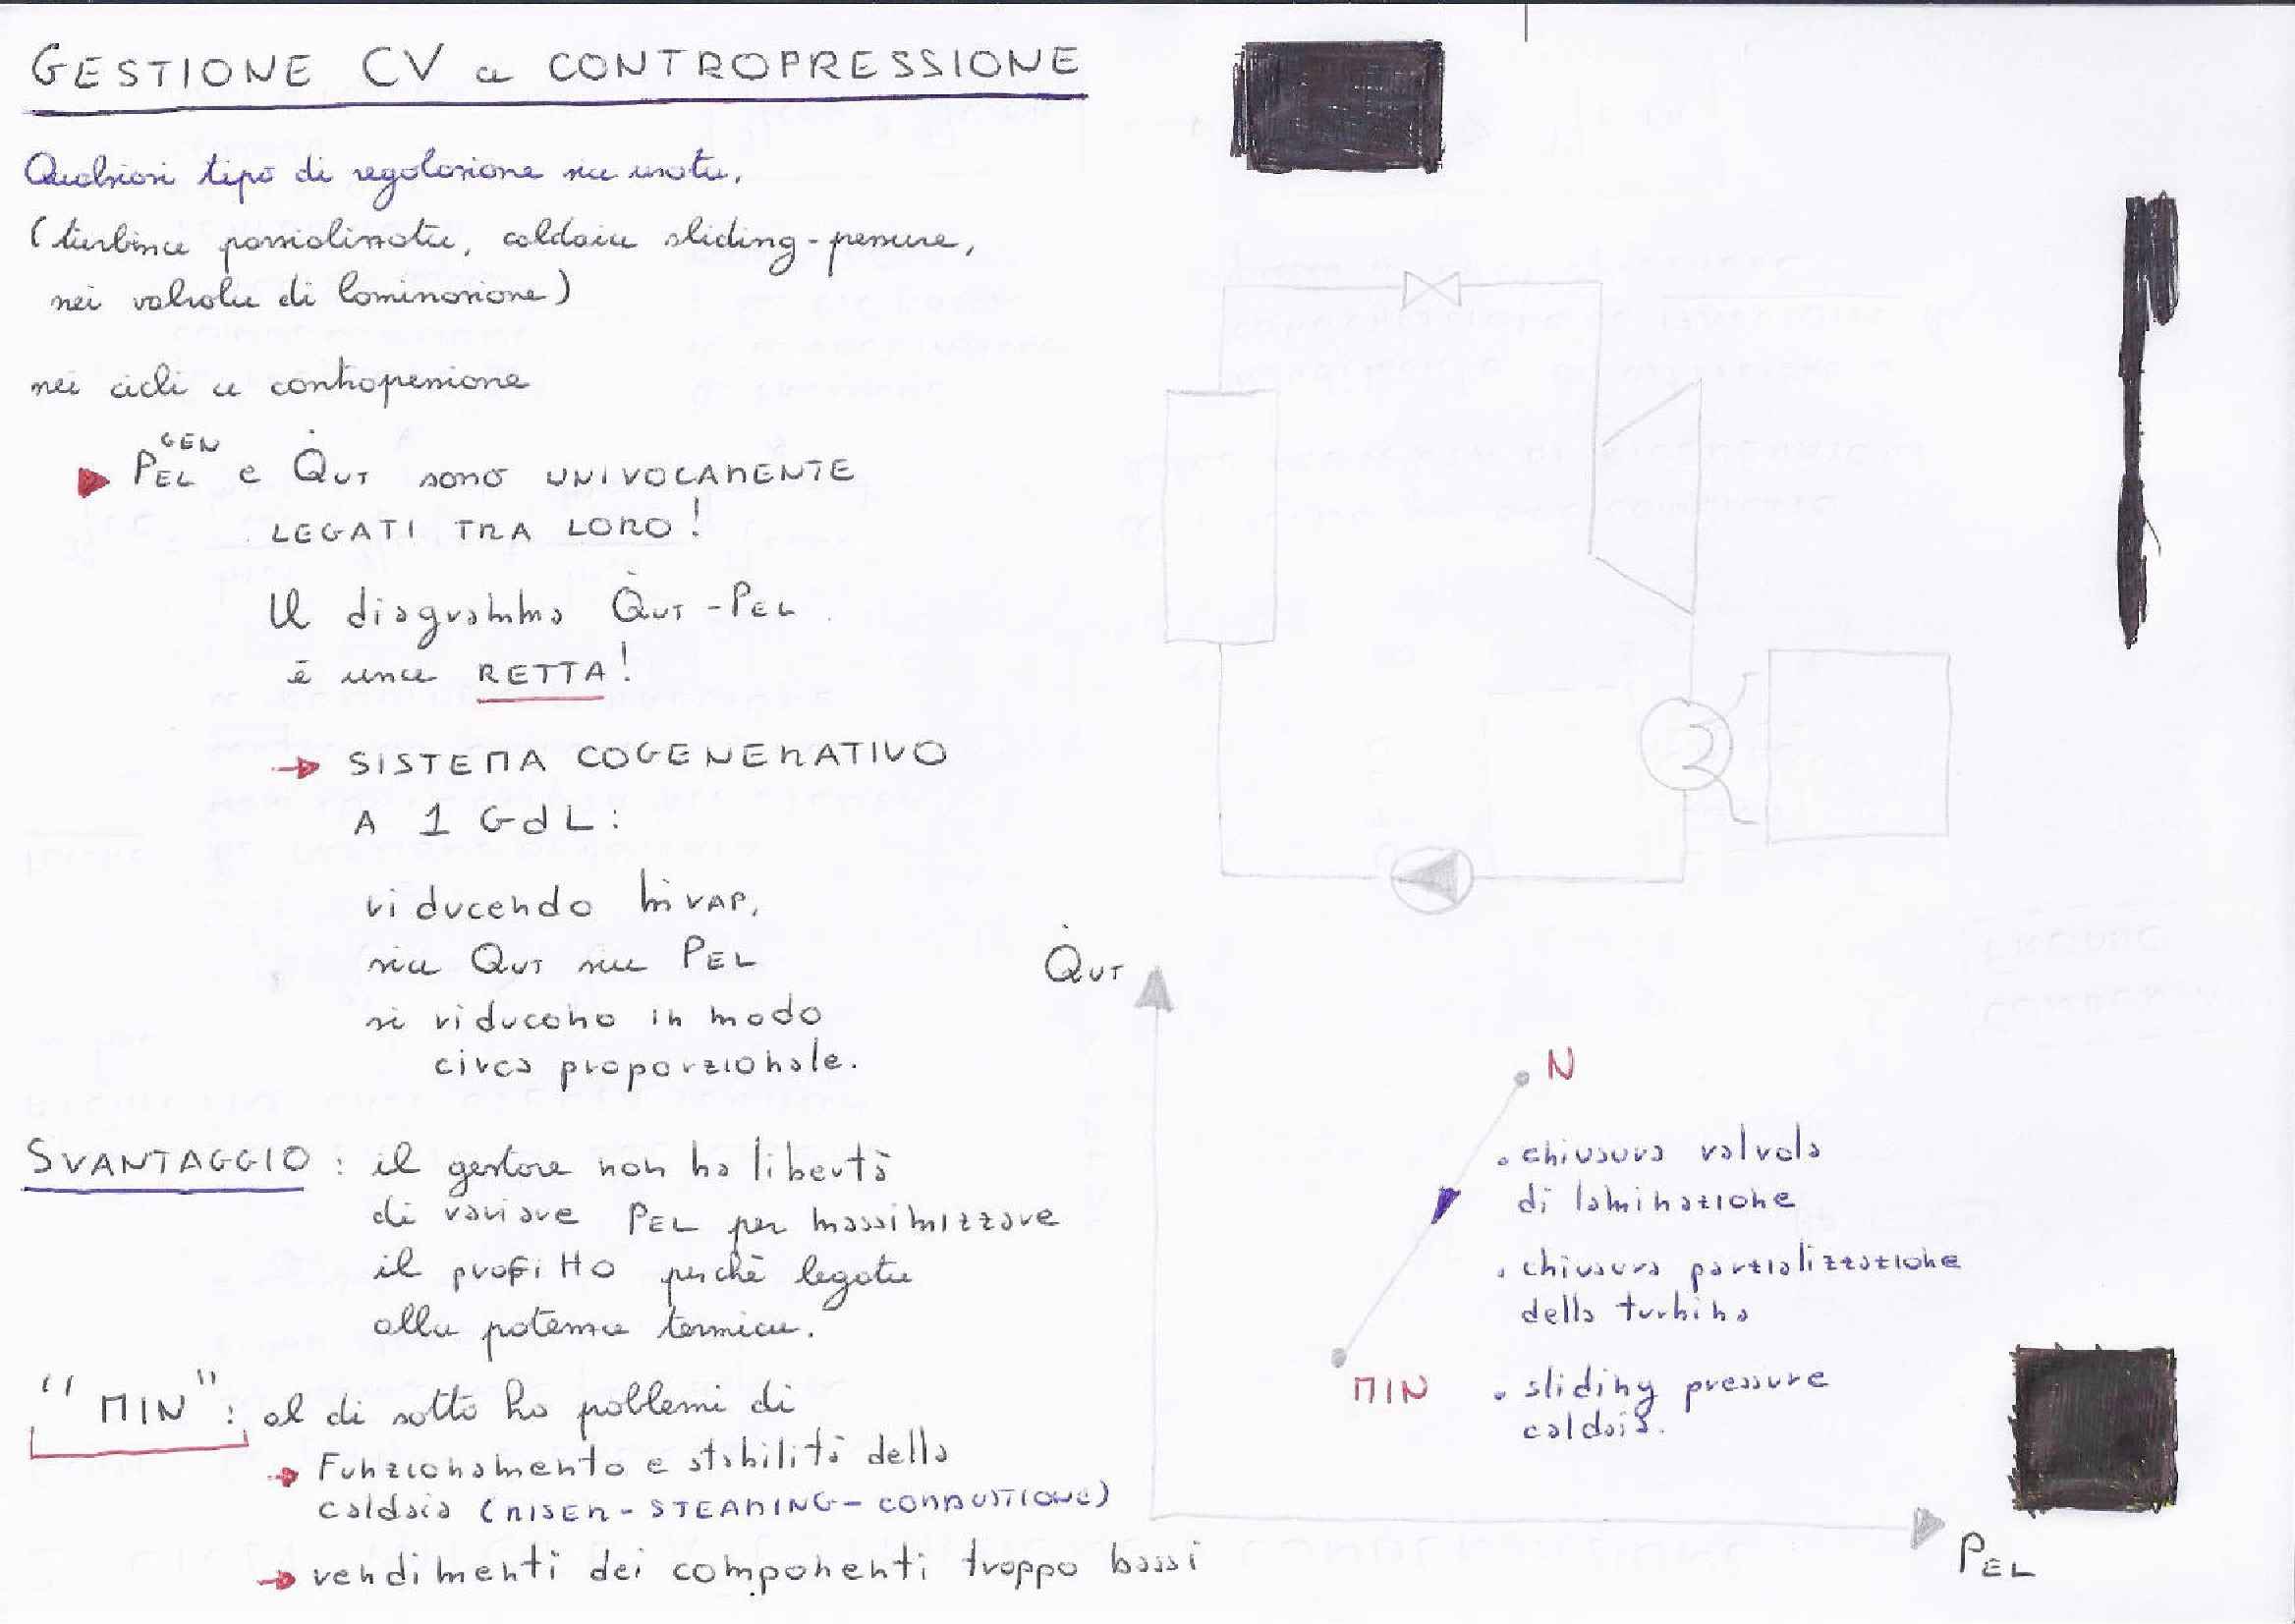 GESTIONE CV a CONTROPRESSIONE
Qualsiasi tipo di regolazione sia usata,
(turbina parzializzata, caldaia sliding-pressure,
sia valvola di laminazione)
nei cicli a contropressione
PEL GEN e Q̇UT sono UNIVOCAMENTE
LEGATI TRA LORO!
Il diagramma Q̇UT - PEL
è una RETTA!
→ SISTEMA COGENERATIVO
A 1 GdL:
riducendo ṁVAP,
sia QUT sia PEL
si riducono in modo
circa proporzionale.
SVANTAGGIO: il gestore non ha libertà
di variare PEL per massimizzare
il profitto perchè legata
alla potenza termica.
"MIN": al di sotto ho poblemi di
→ Funzionamento e stabilità della
caldaia (RISER - STEAMING - COMBUSTIONE)
→ rendimenti dei componenti troppo bassi
Q̇UT
N
• chiusura valvola
di laminazione
• chiusura parzializzazione
della turbina
MIN
• sliding pressure
caldaia.
PEL